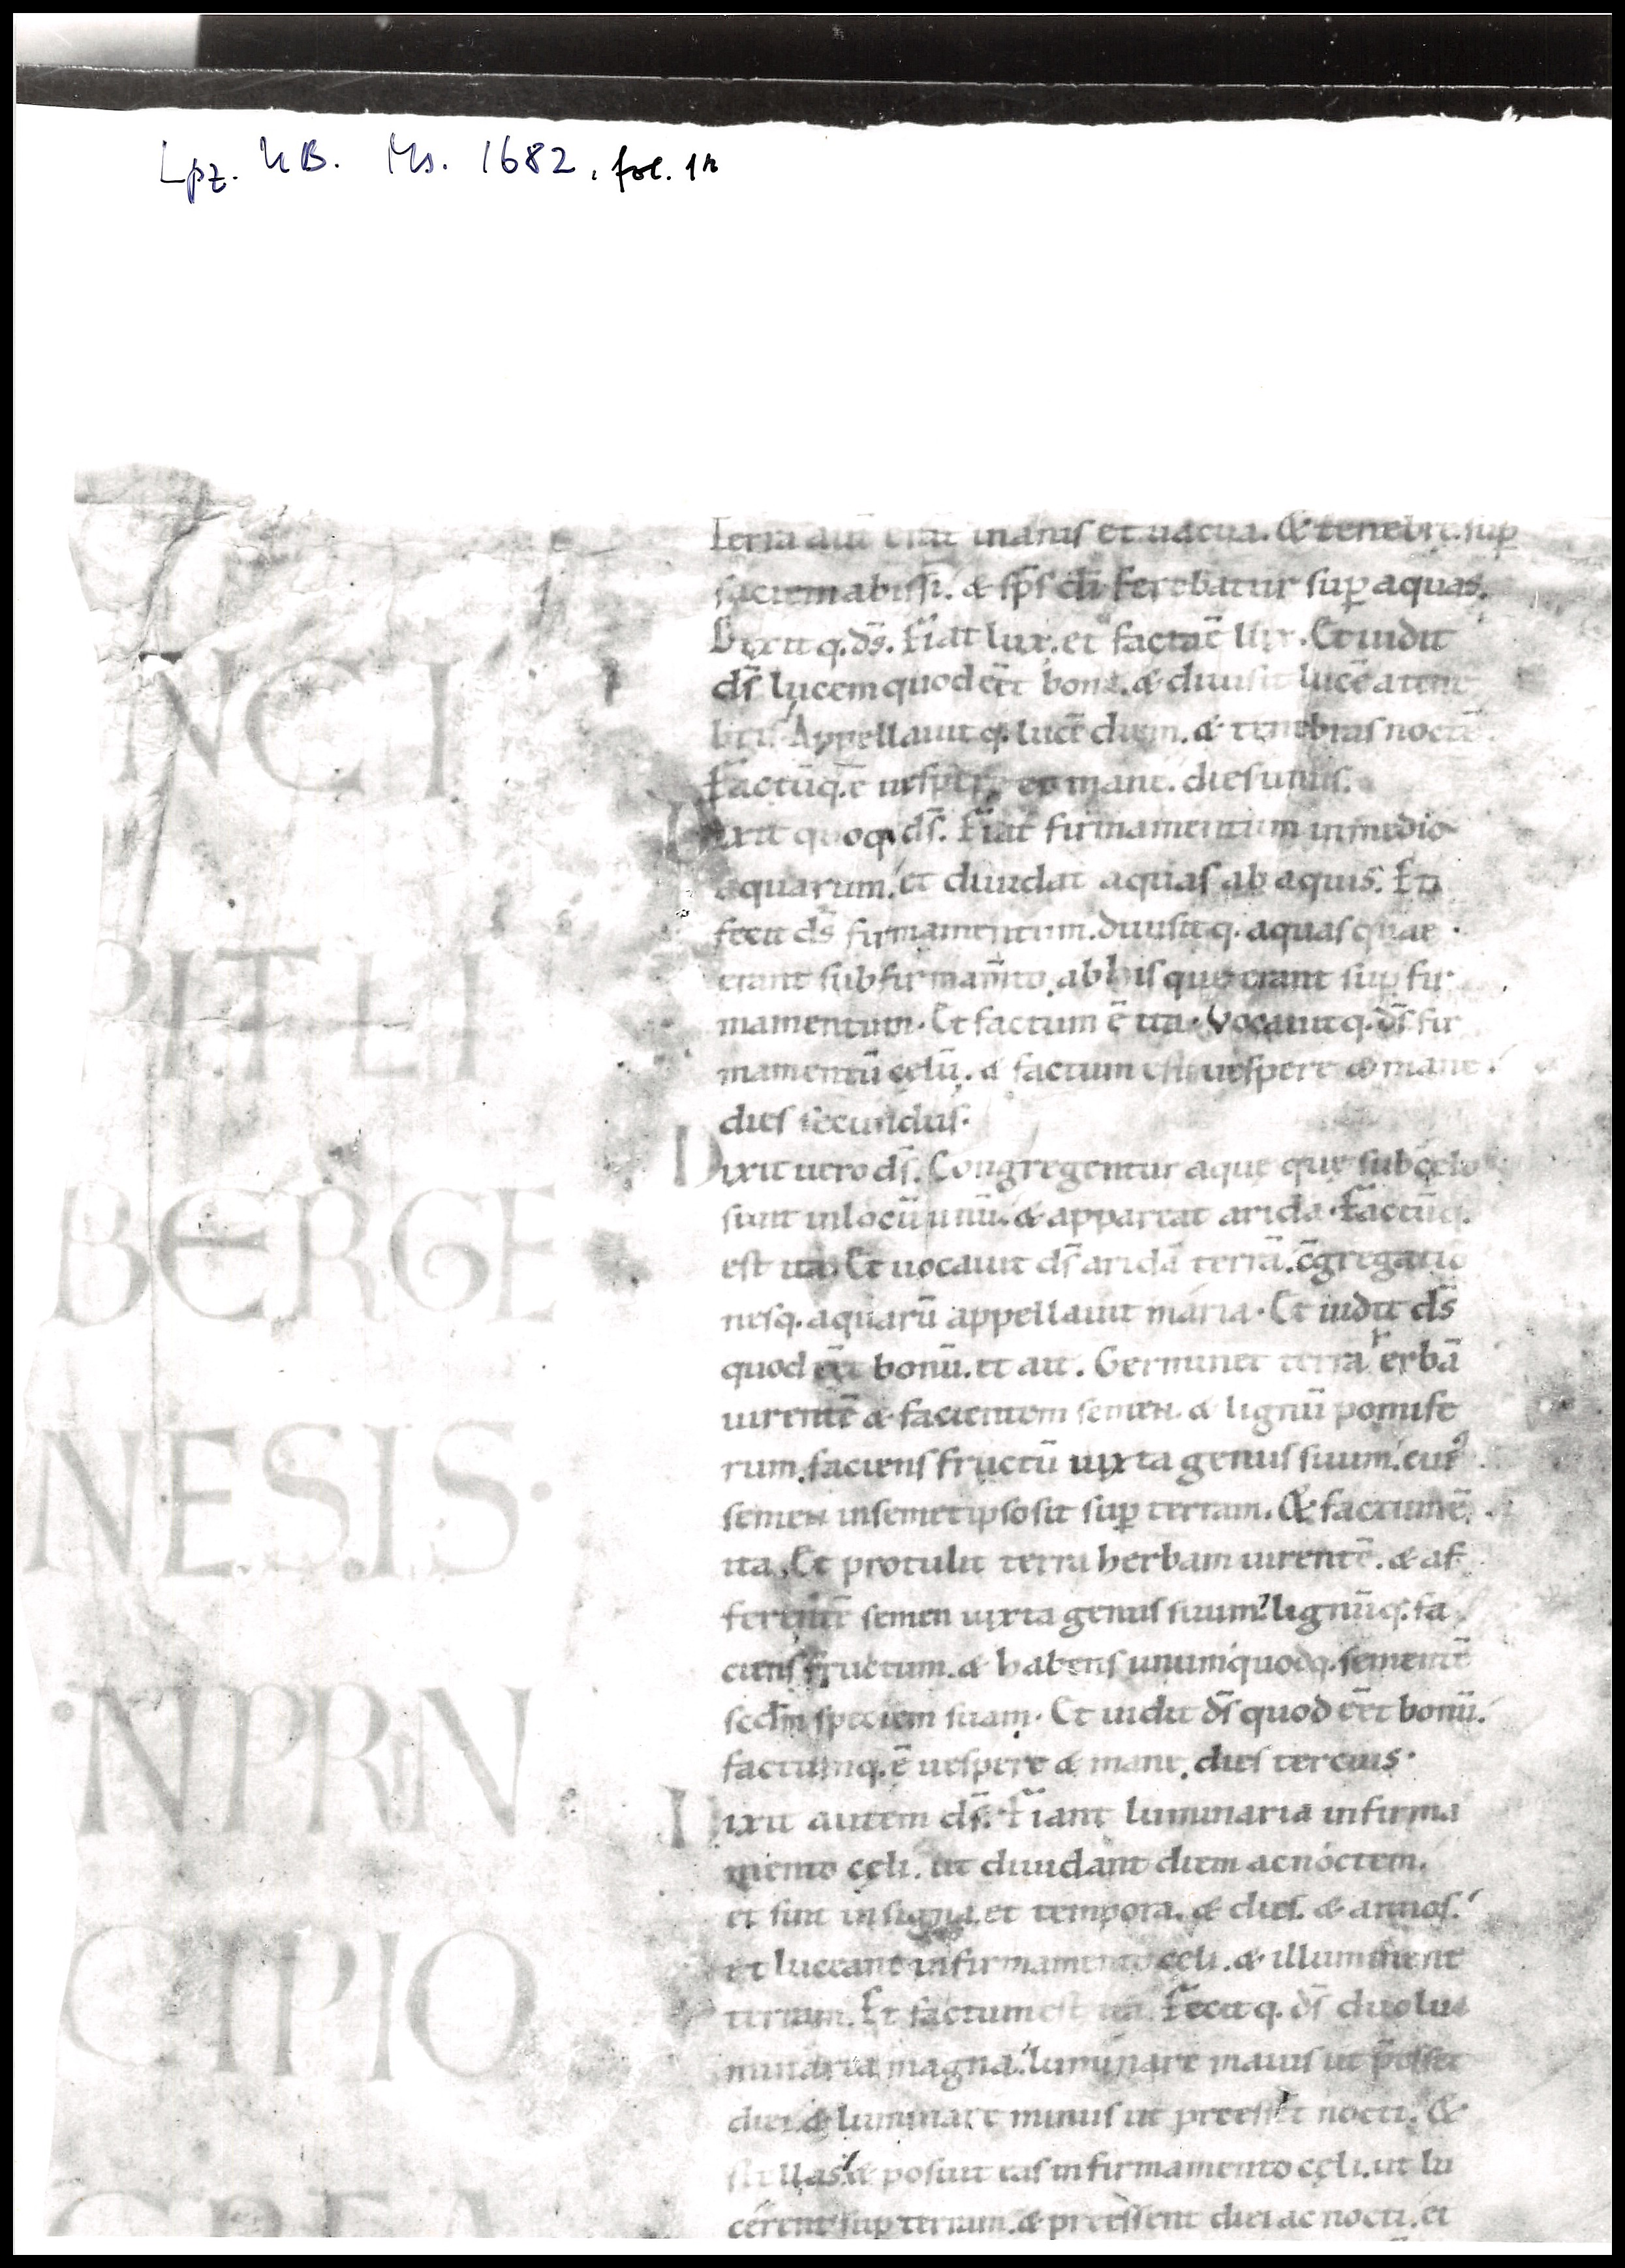 Lpz. UB. Ms. 1682, fol. 1r
NCI
PIT LI
BERGE
NESIS·
·NPRIN
CIPIO
CREA
Terra aut̄ erat inanis et uacua. & tenebre. sup̱
faciem abissi. & sp̄s dī ferebatur sup̱ aquas.
Dixitq. ds̄. Fiat lux. et facta ē lux. Et uidit
ds̄ lucem quod eēt bona. & diuisit lucē a tene
bris. Appellauitq. lucē diem. & tenebras noctē.
Factūq. ē uespere et mane. dies unus.
Dixit quoq. ds̄. Fiat firmamentum in medio
aquarum. et diuidat aquas ab aquis. Et
fecit ds̄ firmamentum. diuisitq. aquas quae
erant sub firmam̄to. ab his que erant sup̱ fir
mamentum. Et factum ē ita. Vocauitq. ds̄ fir
mamentū cęlū. & factum est uespere & mane.
dies secundus.
Dixit uero ds̄. Congregentur aque que sub cęlo
sunt in locū unū. & appareat arida. Factūq.
est ita. Et uocauit ds̄ aridā terrā. c̄gregatio
nesq. aquarū appellauit maria. Et uidit ds̄
quod eēt bonū. et ait. Germinet terra herbā
uirentē & facientem semen. & lignū pomife
rum. faciens fructū iuxta genus suum. cuiꝰ
semen in semetipso sit sup̱ terram. & factum ē
ita. Et protulit terra herbam uirentē. & af
ferentē semen iuxta genus suum. lignūq. fa
ciens fructum. & habens unumquodq. sementē
scdm̄ speciem suam. Et uidit ds̄ quod eēt bonū.
factumq. ē uespere & mane. dies tercius.
Dixit autem ds̄. Fiant luminaria in firma
mento cęli. ut diuidant diem ac noctem.
et sint in signa. et tempora. & dies. & annos.
et luceant in firmamento cęli. & illuminent
terram. Et factum est ita. Fecitq. ds̄ duo lu
minaria magna. luminare maius ut p̄esset
diei. & luminare minus ut preesset nocti. &
stellas. & posuit eas in firmamento cęli. ut lu
cerent sup̱ terram. & preessent diei ac nocti. et